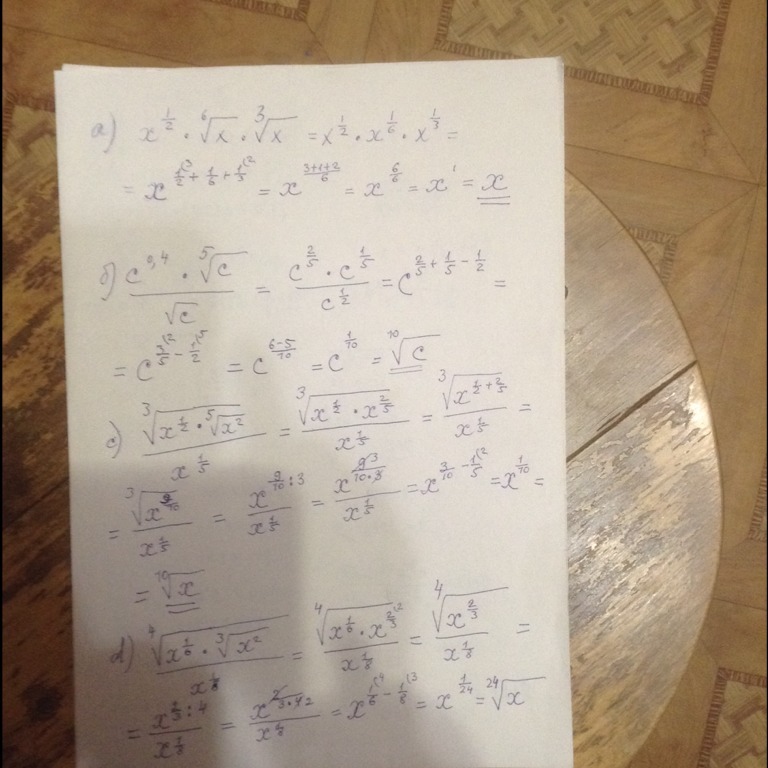 а) x^{\frac{1}{2}} · \sqrt[6]{x} · \sqrt[3]{x} = x^{\frac{1}{2}} · x^{\frac{1}{6}} · x^{\frac{1}{3}} =
= x^{\frac{1}{2}^{(3} + \frac{1}{6} + \frac{1}{3}^{(2}} = x^{\frac{3+1+2}{6}} = x^{\frac{6}{6}} = x^1 = x
б) \frac{c^{0,4} · \sqrt[5]{c}}{\sqrt{c}} = \frac{c^{\frac{2}{5}} · c^{\frac{1}{5}}}{c^{\frac{1}{2}}} = c^{\frac{2}{5} + \frac{1}{5} - \frac{1}{2}} =
= c^{\frac{3}{5}^{(2} - \frac{1}{2}^{(5}} = c^{\frac{6-5}{10}} = c^{\frac{1}{10}} = \sqrt[10]{c}
с) \frac{\sqrt[3]{x^{\frac{1}{2}} · \sqrt[5]{x^2}}}{x^{\frac{1}{5}}} = \frac{\sqrt[3]{x^{\frac{1}{2}} · x^{\frac{2}{5}}}}{x^{\frac{1}{5}}} = \frac{\sqrt[3]{x^{\frac{1}{2} + \frac{2}{5}}}}{x^{\frac{1}{5}}} =
= \frac{\sqrt[3]{x^{\frac{9}{10}}}}{x^{\frac{1}{5}}} = \frac{x^{\frac{9}{10} : 3}}{x^{\frac{1}{5}}} = \frac{x^{\frac{9^3}{10·3}}}{x^{\frac{1}{5}}} = x^{\frac{3}{10} - \frac{1}{5}^{(2}} = x^{\frac{1}{10}} =
= \sqrt[10]{x}
d) \frac{\sqrt[4]{x^{\frac{1}{6}} · \sqrt[3]{x^2}}}{x^{\frac{1}{8}}} = \frac{\sqrt[4]{x^{\frac{1}{6}} · x^{\frac{2}{3}^{(2}}}}{x^{\frac{1}{8}}} = \frac{\sqrt[4]{x^{\frac{2}{3}}}}{x^{\frac{1}{8}}} =
= \frac{x^{\frac{2}{3} : 4}}{x^{\frac{1}{8}}} = \frac{x^{\frac{2}{3·4 2}}}{x^{\frac{1}{8}}} = x^{\frac{1}{6}^{(4} - \frac{1}{8}^{(3}} = x^{\frac{1}{24}} = \sqrt[24]{x}